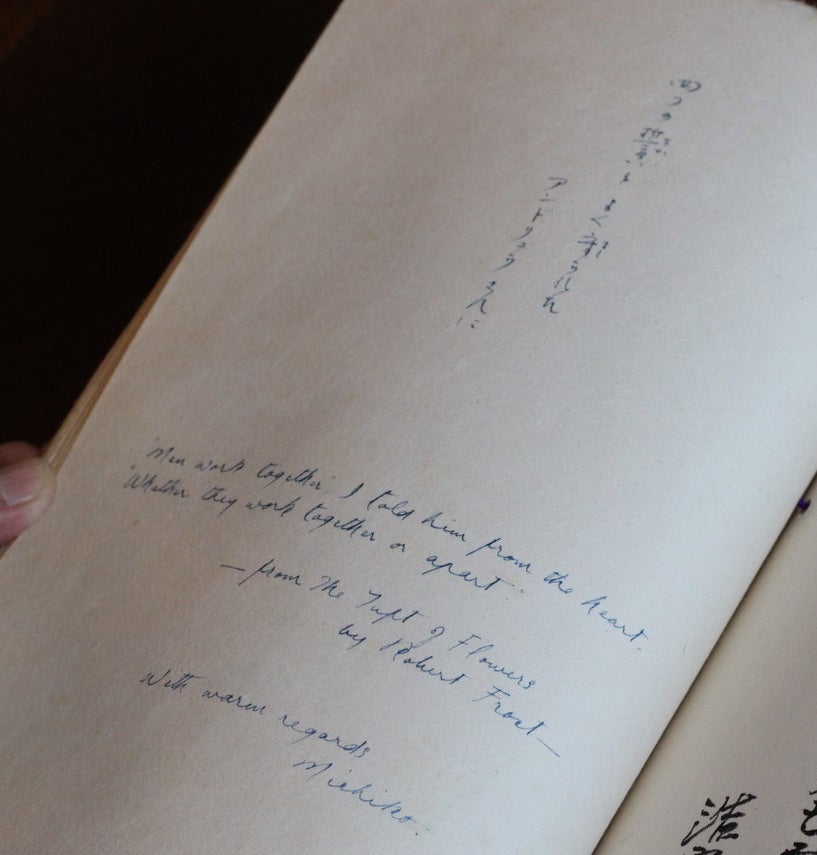 の よく
さんに
"Men work together" I told him from the heart.
"Whether they work together or apart."
— from The Tuft of Flowers
by Robert Frost —
With warm regards
Michiko.
浩